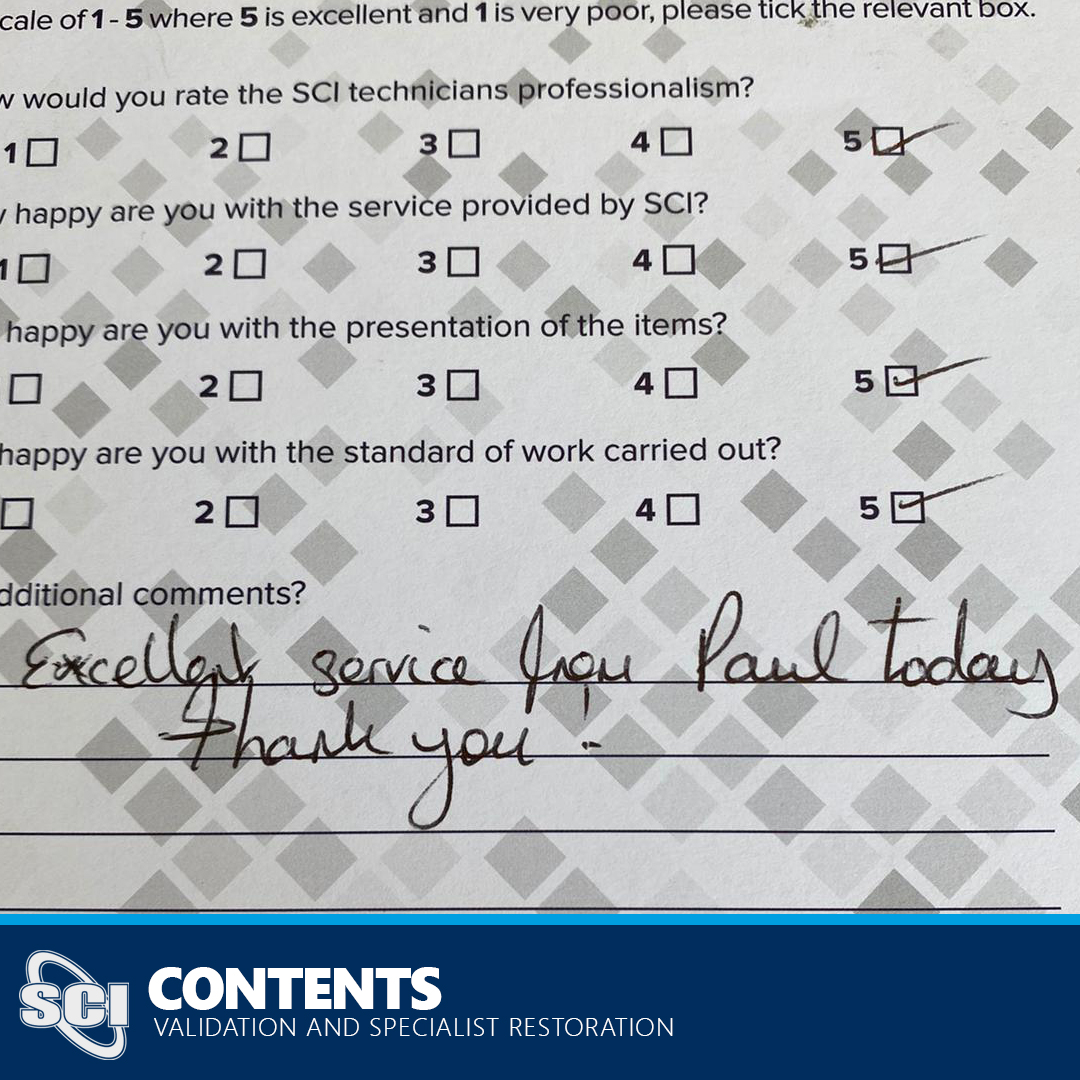 cale of 1 - 5 where 5 is excellent and 1 is very poor, please tick the relevant box.
w would you rate the SCI technicians professionalism?
1 2 3 4 5
happy are you with the service provided by SCI?
1 2 3 4 5
happy are you with the presentation of the items?
2 3 4 5
happy are you with the standard of work carried out?
2 3 4 5
dditional comments?
Excellent service from Paul today
Thank you !
SCI CONTENTS
VALIDATION AND SPECIALIST RESTORATION